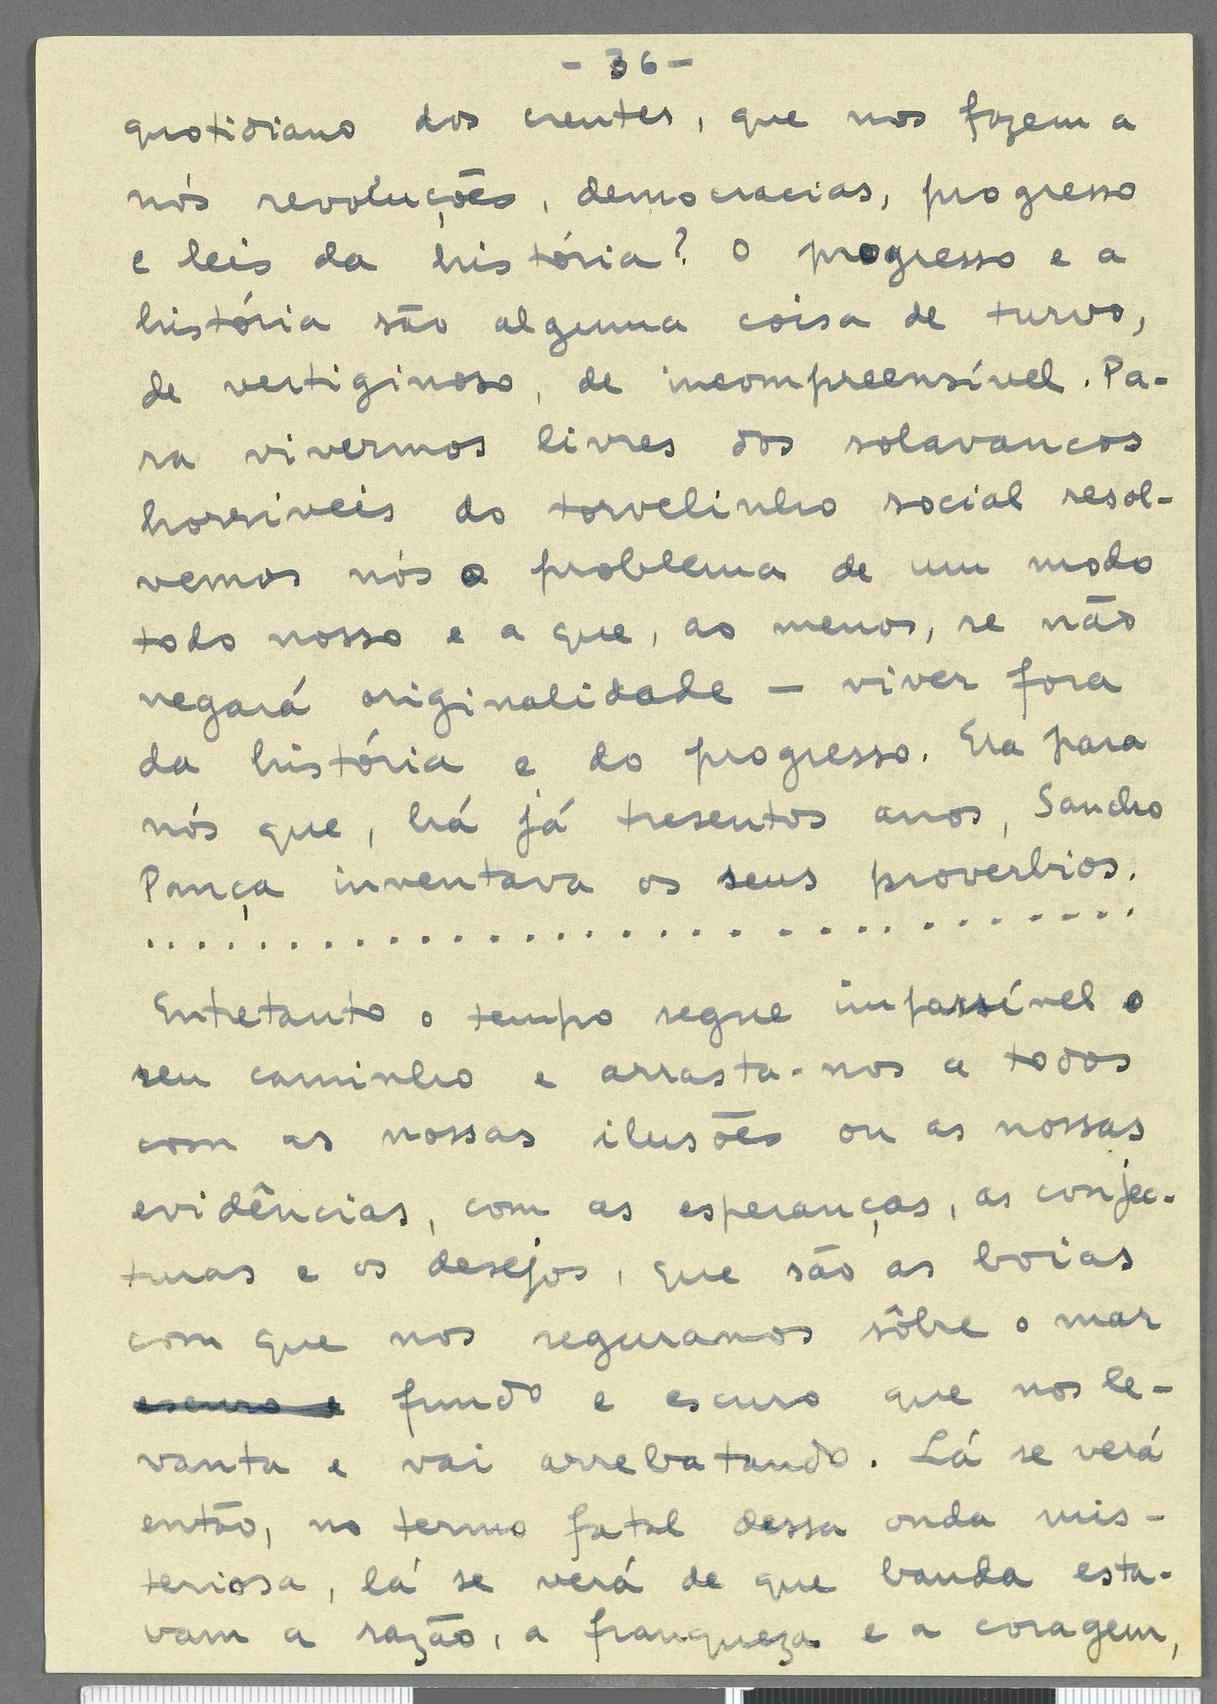 - 36 -
quotidiano dos crentes, que nos fazem a
nós revoluções, democracias, progresso
e leis da história? O progresso e a
história são alguma coisa de turvo,
de vertiginoso, de incompreensível. Pa-
ra vivermos livres dos solavancos
horriveis do torvelinho social resol-
vemos nós o problema de um modo
todo nosso e a que, ao menos, se não
negará originalidade — viver fora
da história e do progresso. Era para
nós que, há já tresentos anos, Sancho
Pança inventava os seus proverbios.
..............................
Entretanto o tempo segue impassível o
seu caminho e arrasta-nos a todos
com as nossas ilusões ou as nossas
evidências, com as esperanças, as conjec-
turas e os desejos, que são as boias
com que nos seguramos sôbre o mar
escuro e fundo e escuro que nos le-
vanta e vai arrebatando. Lá se verá
então, no termo fatal dessa onda mis-
teriosa, lá se verá de que banda esta-
vam a razão, a franqueza e a coragem,